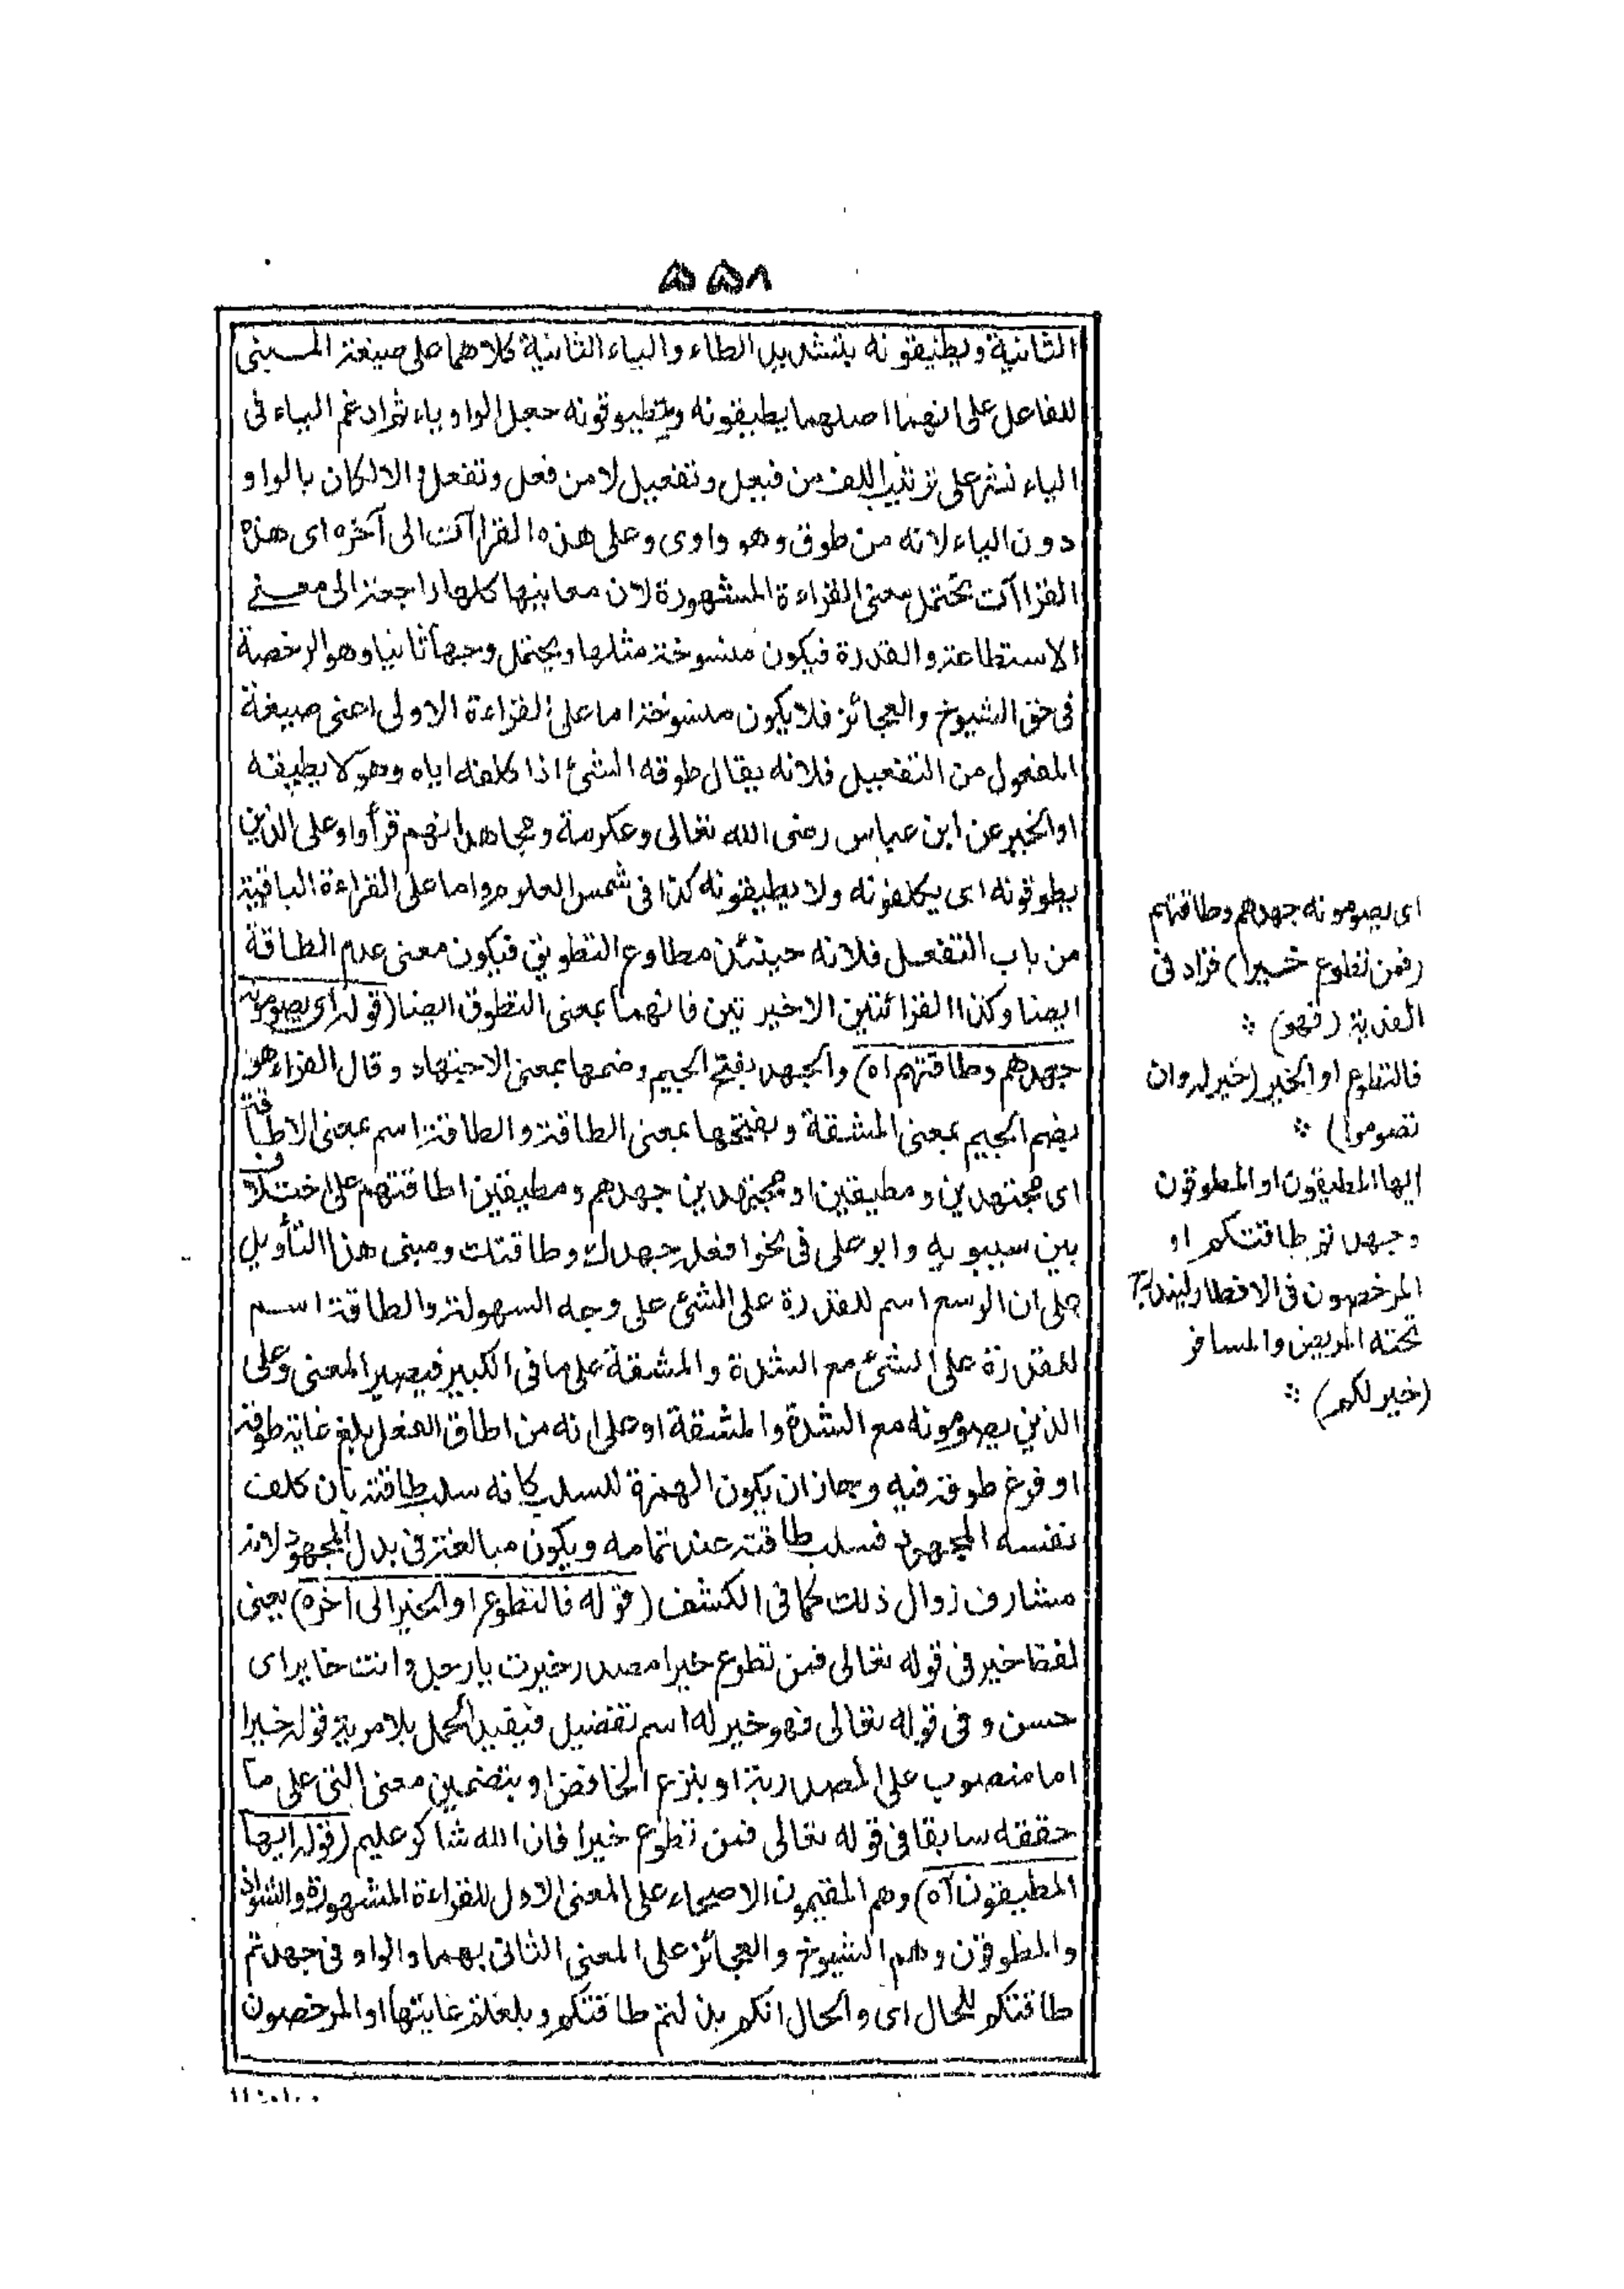 ٥٥٨
الثانية ويطيقونه بتشديد الطاء والياء الثانية كلاهما على صيغة المبنى
للفاعل على انهما اصلهما يطيقونه ويتطيوقونه جعل الواو ياء ثم ادغم الياء فى
الياء نشر على ترتيب اللف من فيعل وتفعيل لا من فعل وتفعل والا لكان بالواو
دون الياء لانه من طوق وهو واوى وعلى هذه القراآت الى آخره اى هذه
القراآت تحتمل معنى القراءة المشهورة لان معانيها كلها راجعة الى معنى
الاستطاعة والقدرة فيكون منسوخة مثلها ويحتمل وجها ثانيا وهو الرخصة
فى حق الشيوخ والعجائز فلا يكون منسوخة اما على القراءة الاولى اعنى صيغة
المفعول من التفعيل فلانه يقال طوقه الشئ اذا كلفه اياه وهو لا يطيقه
او الخبر عن ابن عباس رضى الله تعالى وعكرمة ومجاهد انهم قرأوا وعلى الذين
يطوقونه اى يكلفونه ولا يطيقونه كذا فى شمس العلوم واما على القراءة الباقية
من باب التفعل فلانه حينئذ مطاوع التطويق فيكون معنى عدم الطاقة
ايضا وكذا القرائتين الاخيرتين فانهما بمعنى التطوق ايضا (قوله اى يصومونه
جهدهم وطاقتهم اه) والجهد بفتح الجيم وضمها بمعنى الاجتهاد وقال الفراء هو
بضم الجيم بمعنى المشقة وبفتحها بمعنى الطاقة والطاقة اسم بمعنى الاطاقة
اى مجتهدين ومطيقين او مجتهدين جهدهم ومطيقين اطاقتهم على اختلاف
بين سيبويه وابو على فى نحو افعل جهدك وطاقتك ومبنى هذا التأويل
على ان الوسع اسم للقدرة على الشئ على وجه السهولة والطاقة اسم
للقدرة على الشئ مع الشدة والمشقة على ما فى الكبير فيصير المعنى وعلى
الذين يصومونه مع الشدة والمشقة او على انه من اطاق الفعل بلغ غاية طوقه
او فرغ طوقه فيه وجاز ان يكون الهمزة للسلب كانه سلب طاقته بان كلف
نفسه المجهود فسلب طاقته عند تمامه ويكون مبالغة فى بدل المجهود لانه
مشارف زوال ذلك كما فى الكشف (قوله فالتطوع او الخير الى آخره) يعنى
لفظ خير فى قوله تعالى فمن تطوع خيرا مصدر خيرت يا رجل وانت خاير اى
حسن وفى قوله تعالى فهو خير له اسم تفضيل فيفيد الحمل بلا مرية قوله خيرا
اما منصوب على المصدرية او بنزع الخافض او بتضمين معنى اتى على ما
حققه سابقا فى قوله تعالى فمن تطوع خيرا فان الله شاكر عليم (قوله ايها
المطيقون آه) وهم المقيمون الاصحاء على المعنى الاول للقراءة المشهورة والشواذ
والمطوقون وهم الشيوخ والعجائز على المعنى الثانى بهما والواو فى جهدتم
طاقتكم للحال اى والحال انكم بذلتم طاقتكم وبلغتم غايتها او المرخصون
اى يصومونه جهدهم وطاقتهم
(فمن تطوع خيرا) فزاد فى
الفدية (فهو)
فالتطوع او الخير (خير له وان
تصوموا)
ايها المطيقون او المطوقون
وجهدتم طاقتكم او
المرخصون فى الافطار ليندرج
تحته المريض والمسافر
(خير لكم)